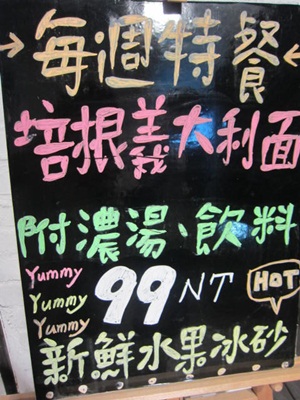 →每週特餐←
培根義大利面
附濃湯、飲料
Yummy
Yummy
Yummy
99NT
HOT
新鮮水果冰砂